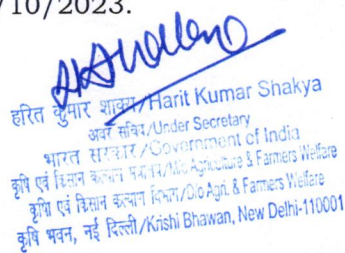 /10/2023.
हरित कुमार शाक्य/Harit Kumar Shakya
अवर सचिव/Under Secretary
भारत सरकार/Government of India
कृषि एवं किसान कल्याण मंत्रालय/M/o Agriculture & Farmers Welfare
कृषि एवं किसान कल्याण विभाग/D/o Agri. & Farmers Welfare
कृषि भवन, नई दिल्ली/Krishi Bhawan, New Delhi-110001